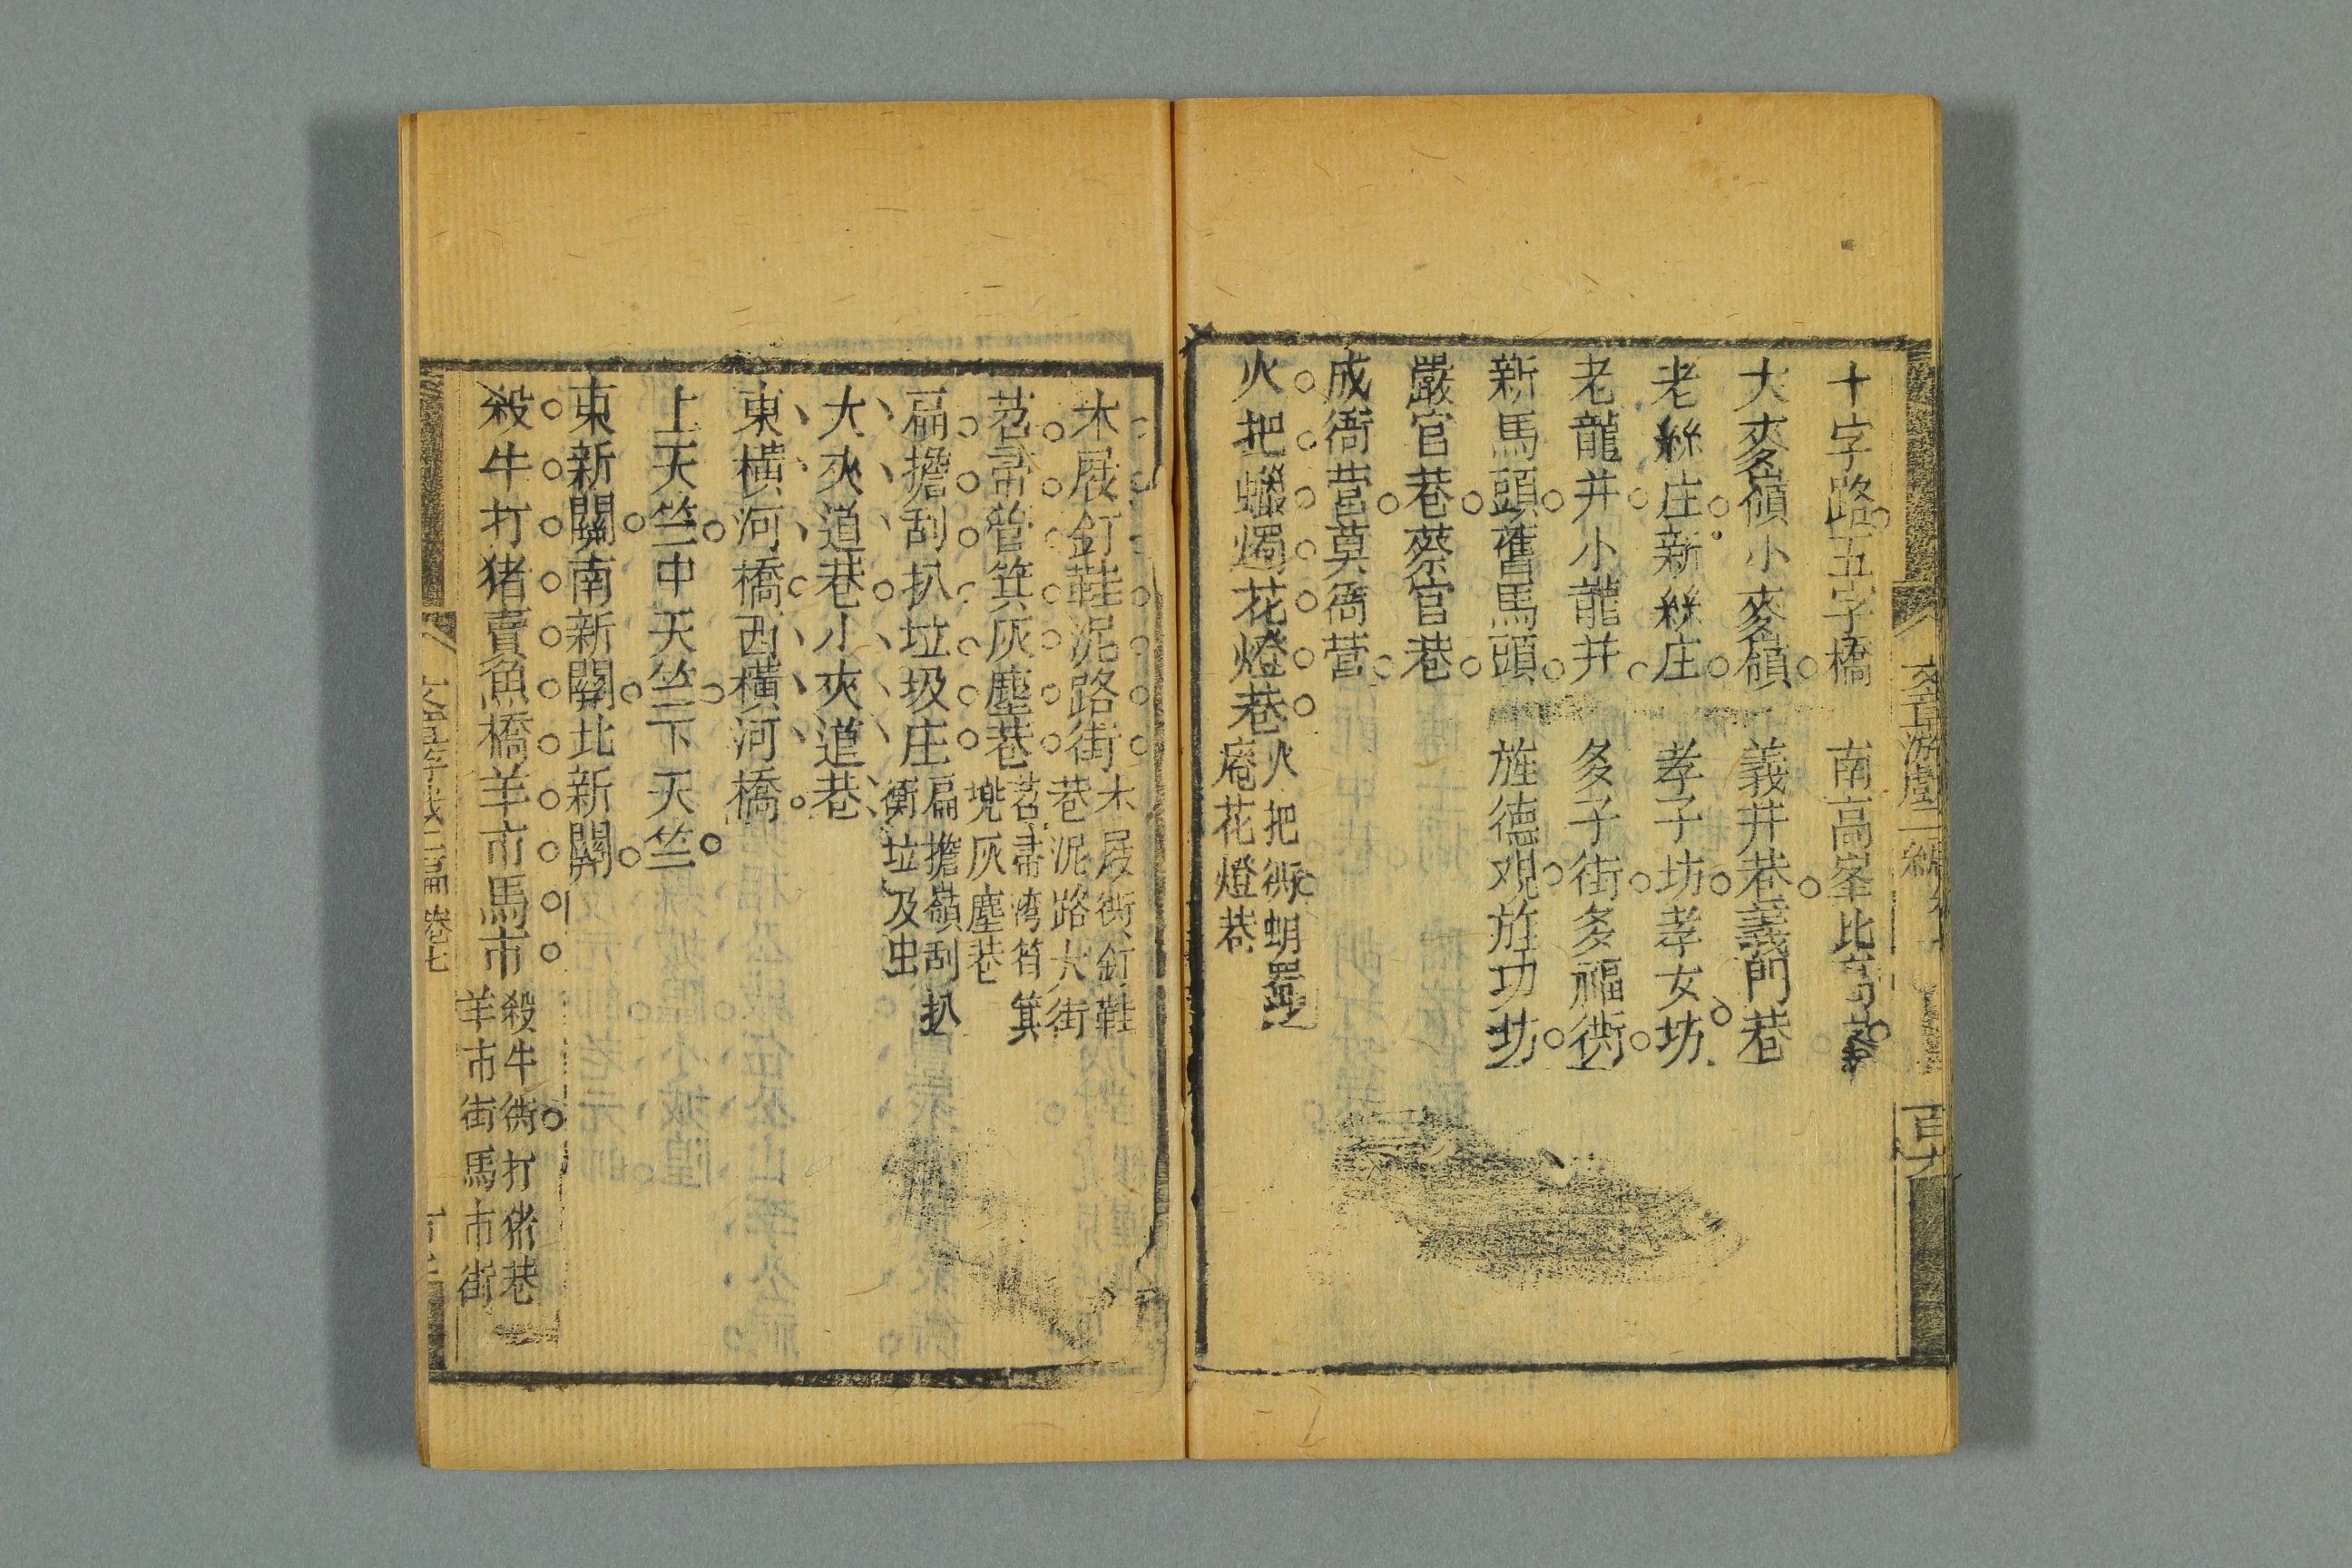 十字路五字橋　南高峯北高峯
大麥嶺小麥嶺　義井巷義門巷
老絲庄新絲庄　孝子坊孝女坊
老龍井小龍井　多子街多福衖
新馬頭舊馬頭　旌德观旌功坊
嚴官巷蔡官巷
成衙营莫衙营
火把蠟燭花燈巷 火把衖蜡
庵花燈巷
木屐釘鞋泥路街 木屐衖釘鞋
巷泥路大街
苕帚管箕灰塵巷 苕帚湾筲箕
兠灰塵巷
扁擔刮扒垃圾庄 扁擔嶺刮扒
衖垃及虫
大夾道巷小夾道巷
東橫河橋西橫河橋
上天竺中天竺下天竺
東新關南新關北新關
殺牛打猪賣魚橋羊市馬市 殺牛衖打猪巷
羊市街馬市街
卷七